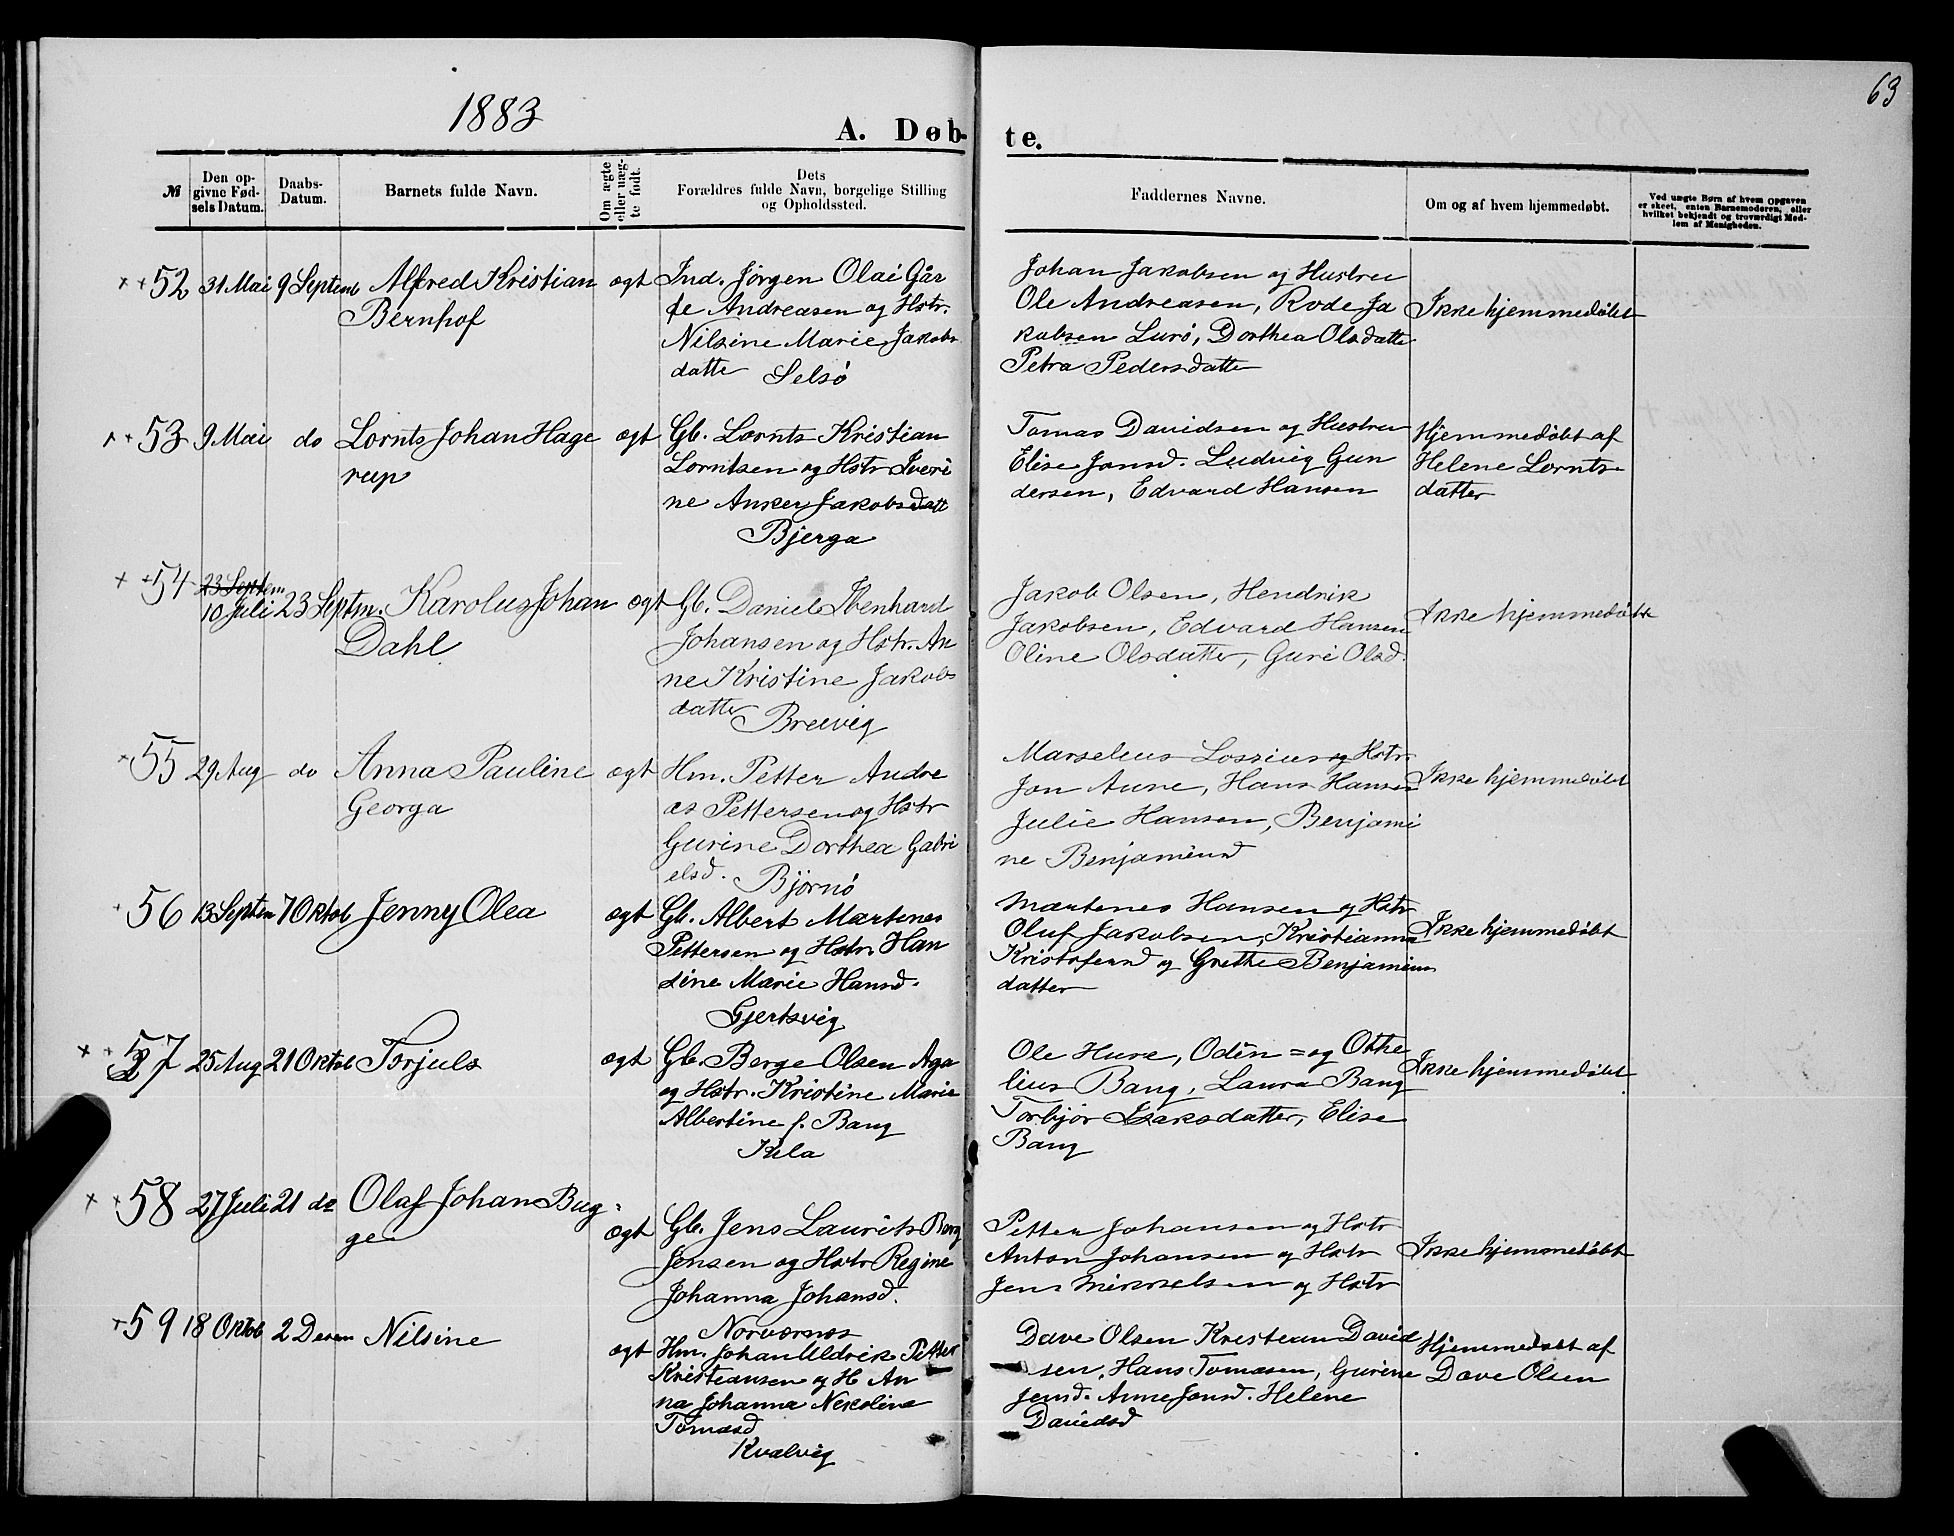 1883
63
A. Døb-
te.
№
Den op-
givne Fød-
sels Datum.
Daabs-
Datum.
Barnets fulde Navn.
Om ægte
eller uæg-
te født.
Dets
Forældres fulde Navn, borgelige Stilling
og Opholdssted.
Faddernes Navne.
Om og af hvem hjemmedøbt.
Ved uægte Børn af hvem Opgaven
er skeet, enten Barnemoderen, eller
hvilket bekjendt og troværdigt Med-
lem af Menigheden.
52 31 Mai 9 Septemb Alfred Kristian
Bernhof
ægt
Ind. Jørgen Olai Går
Andreasen og Hstr.
Nilsine Marie Jakobs
datte Selsø
Johan Jakobsen og Hustru
Ole Andreasen, Rode Ja
kobsen Lurø, Dorthea Olsdatte
Petra Pedersdatte
Ikke hjemmedøbt
53 9 Mai do Lornts Johan Hage
rup
ægt
Gb. Lornts Kristian
Lorntsen og Hstr Iveri
ne Anker Jakobsdatt
Bjerga
Tomas Davidsen og Hustru
Elise Jonsd. Ludvig Gun
dersen, Edvard Hansen
Hjemmedøbt af
Helene Lornts-
datter
54 23 Septem
10 Juli 23 Septm. Karolus Johan
Dahl
ægt
Gb. Daniel Ibenhard
Johansen og Hstr. An
ne Kristine Jakobs
datte Breivig
Jakob Olsen, Hendrik
Jakobsen, Edvard Hansen
Oline Olsdatter, Guri Olsd.
Ikke hjemmedøbt
55 29 Aug do Anna Pauline
Georga
ægt
Hm. Petter Andre
as Pettersen og Hstr
Gurine Dorthea Gabri
elsd. Bjørnø
Marselius Lossius og Hstr.
Jon Aune, Hans Hansen
Julie Hansen, Benjami
ne Benjaminsd
Ikke hjemmedøbt
56 13 Septem 7 Oktob Jenny Olea
ægt
Gb. Albert Martines
Pettersen og Hstr. Han
sine Marie Hansd.
Gjertsvig
Martenes Hansen og Hstr
Oluf Jakobsen, Kristianna
Kristofersd og Grethe Benjamins
datter
Ikke hjemmedøbt
57 25 Aug 21 Oktob Torjuls
ægt
Gb. Børge Olsen Aga
og Hstr. Kristine Marie
Albertine f. Bang
Kila
Ole Hure, Odin = og Othe
lius Bang, Laura Bang
Torbjør Isaksdatter, Elise
Bang
Ikke hjemmedøbt
58 27 Juli 21 do Olaf Johan Bug-
ge
ægt
Gb. Jens Laurits Berg
Jensen og Hstr Regine
Johanna Johansd.
Norværnes
Petter Johansen og Hstr
Anton Johansen og Hstr
Jens Mikkelsen og Hstr
Ikke hjemmedøbt
59 18 Oktob 2 Decem Nilsine
ægt
Hm. Johan Uldrik Petter
Kristiansen og H. An
na Johanna Nikoline
Tomasd
Kvalvig
Dave Olsen Kristian David
sen, Hans Tomasen, Gurine
Jensd. Anne Jonsd. Helene
Davidsd
Hjemmedøbt af
Dave Olsen